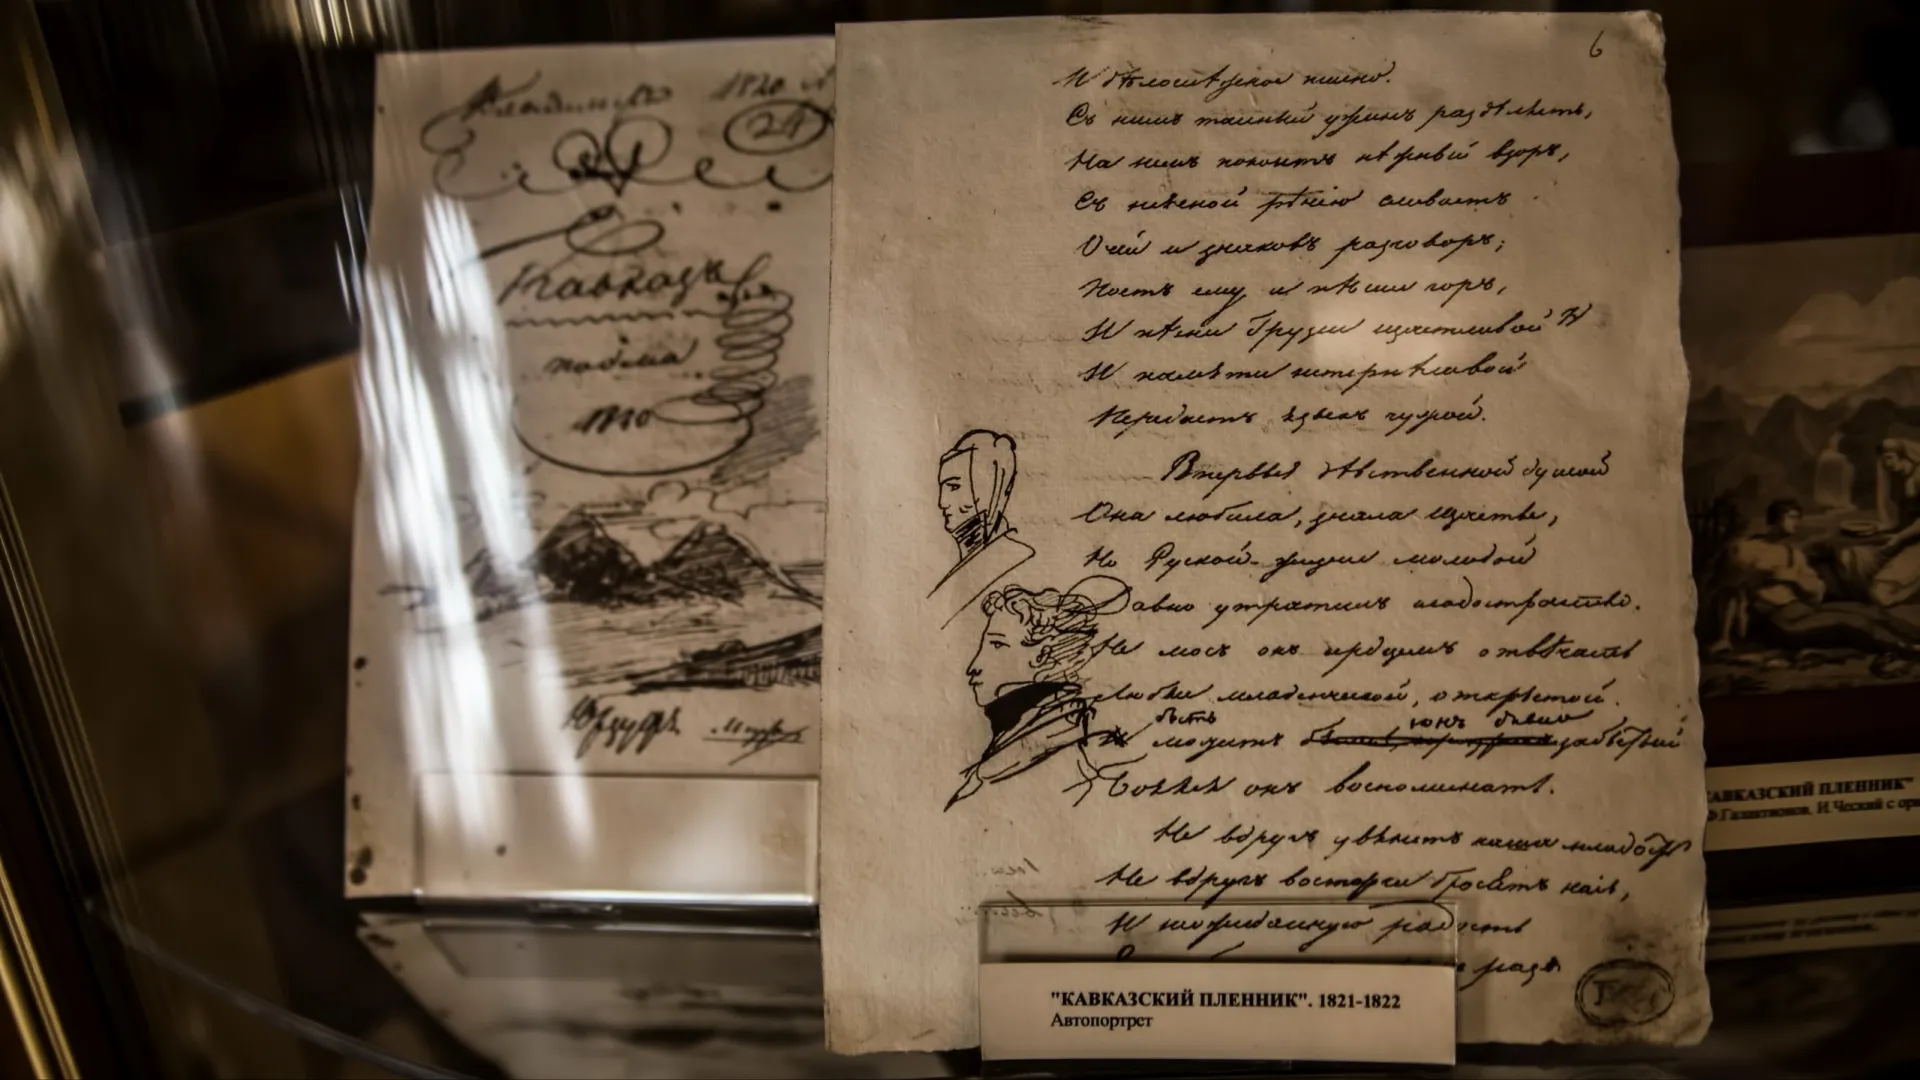 1820
24
Кавказъ
поэма
1820
6
И бѣлоснѣжное пшено.
Съ нимъ тайный ужинъ раздѣляетъ,
На немъ покоитъ нѣжный взоръ,
Съ неясной рѣчію сливаетъ
Очей и знаковъ разговоръ;
Поетъ ему и пѣсни горъ,
И пѣсни Грузіи щастливой
И памяти нетерпѣливой
Передаетъ языкъ чужой.
Впервыя дѣвственной душой
Она любила, знала щастье,
Но Руской жизни молодой
Давно утратилъ сладострастье.
Не могъ онъ сердцемъ отвѣчать
Любви младенческой, открытой.
быть
можетъ забытый
Боялся онъ воспоминать.
Не вдругъ увянетъ наша младость
Не вдругъ восторги бросятъ насъ,
И неожиданную радость
разъ
"КАВКАЗСКИЙ ПЛЕННИК". 1821-1822
Автопортрет
КАВКАЗСКИЙ ПЛЕННИК"
И.Ческий с